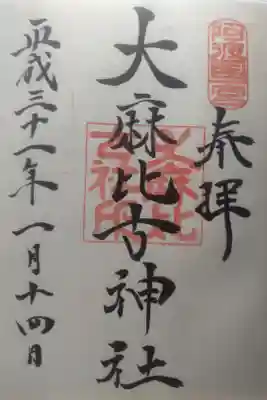 奉拝
大麻比古神社
平成三十一年一月十四日